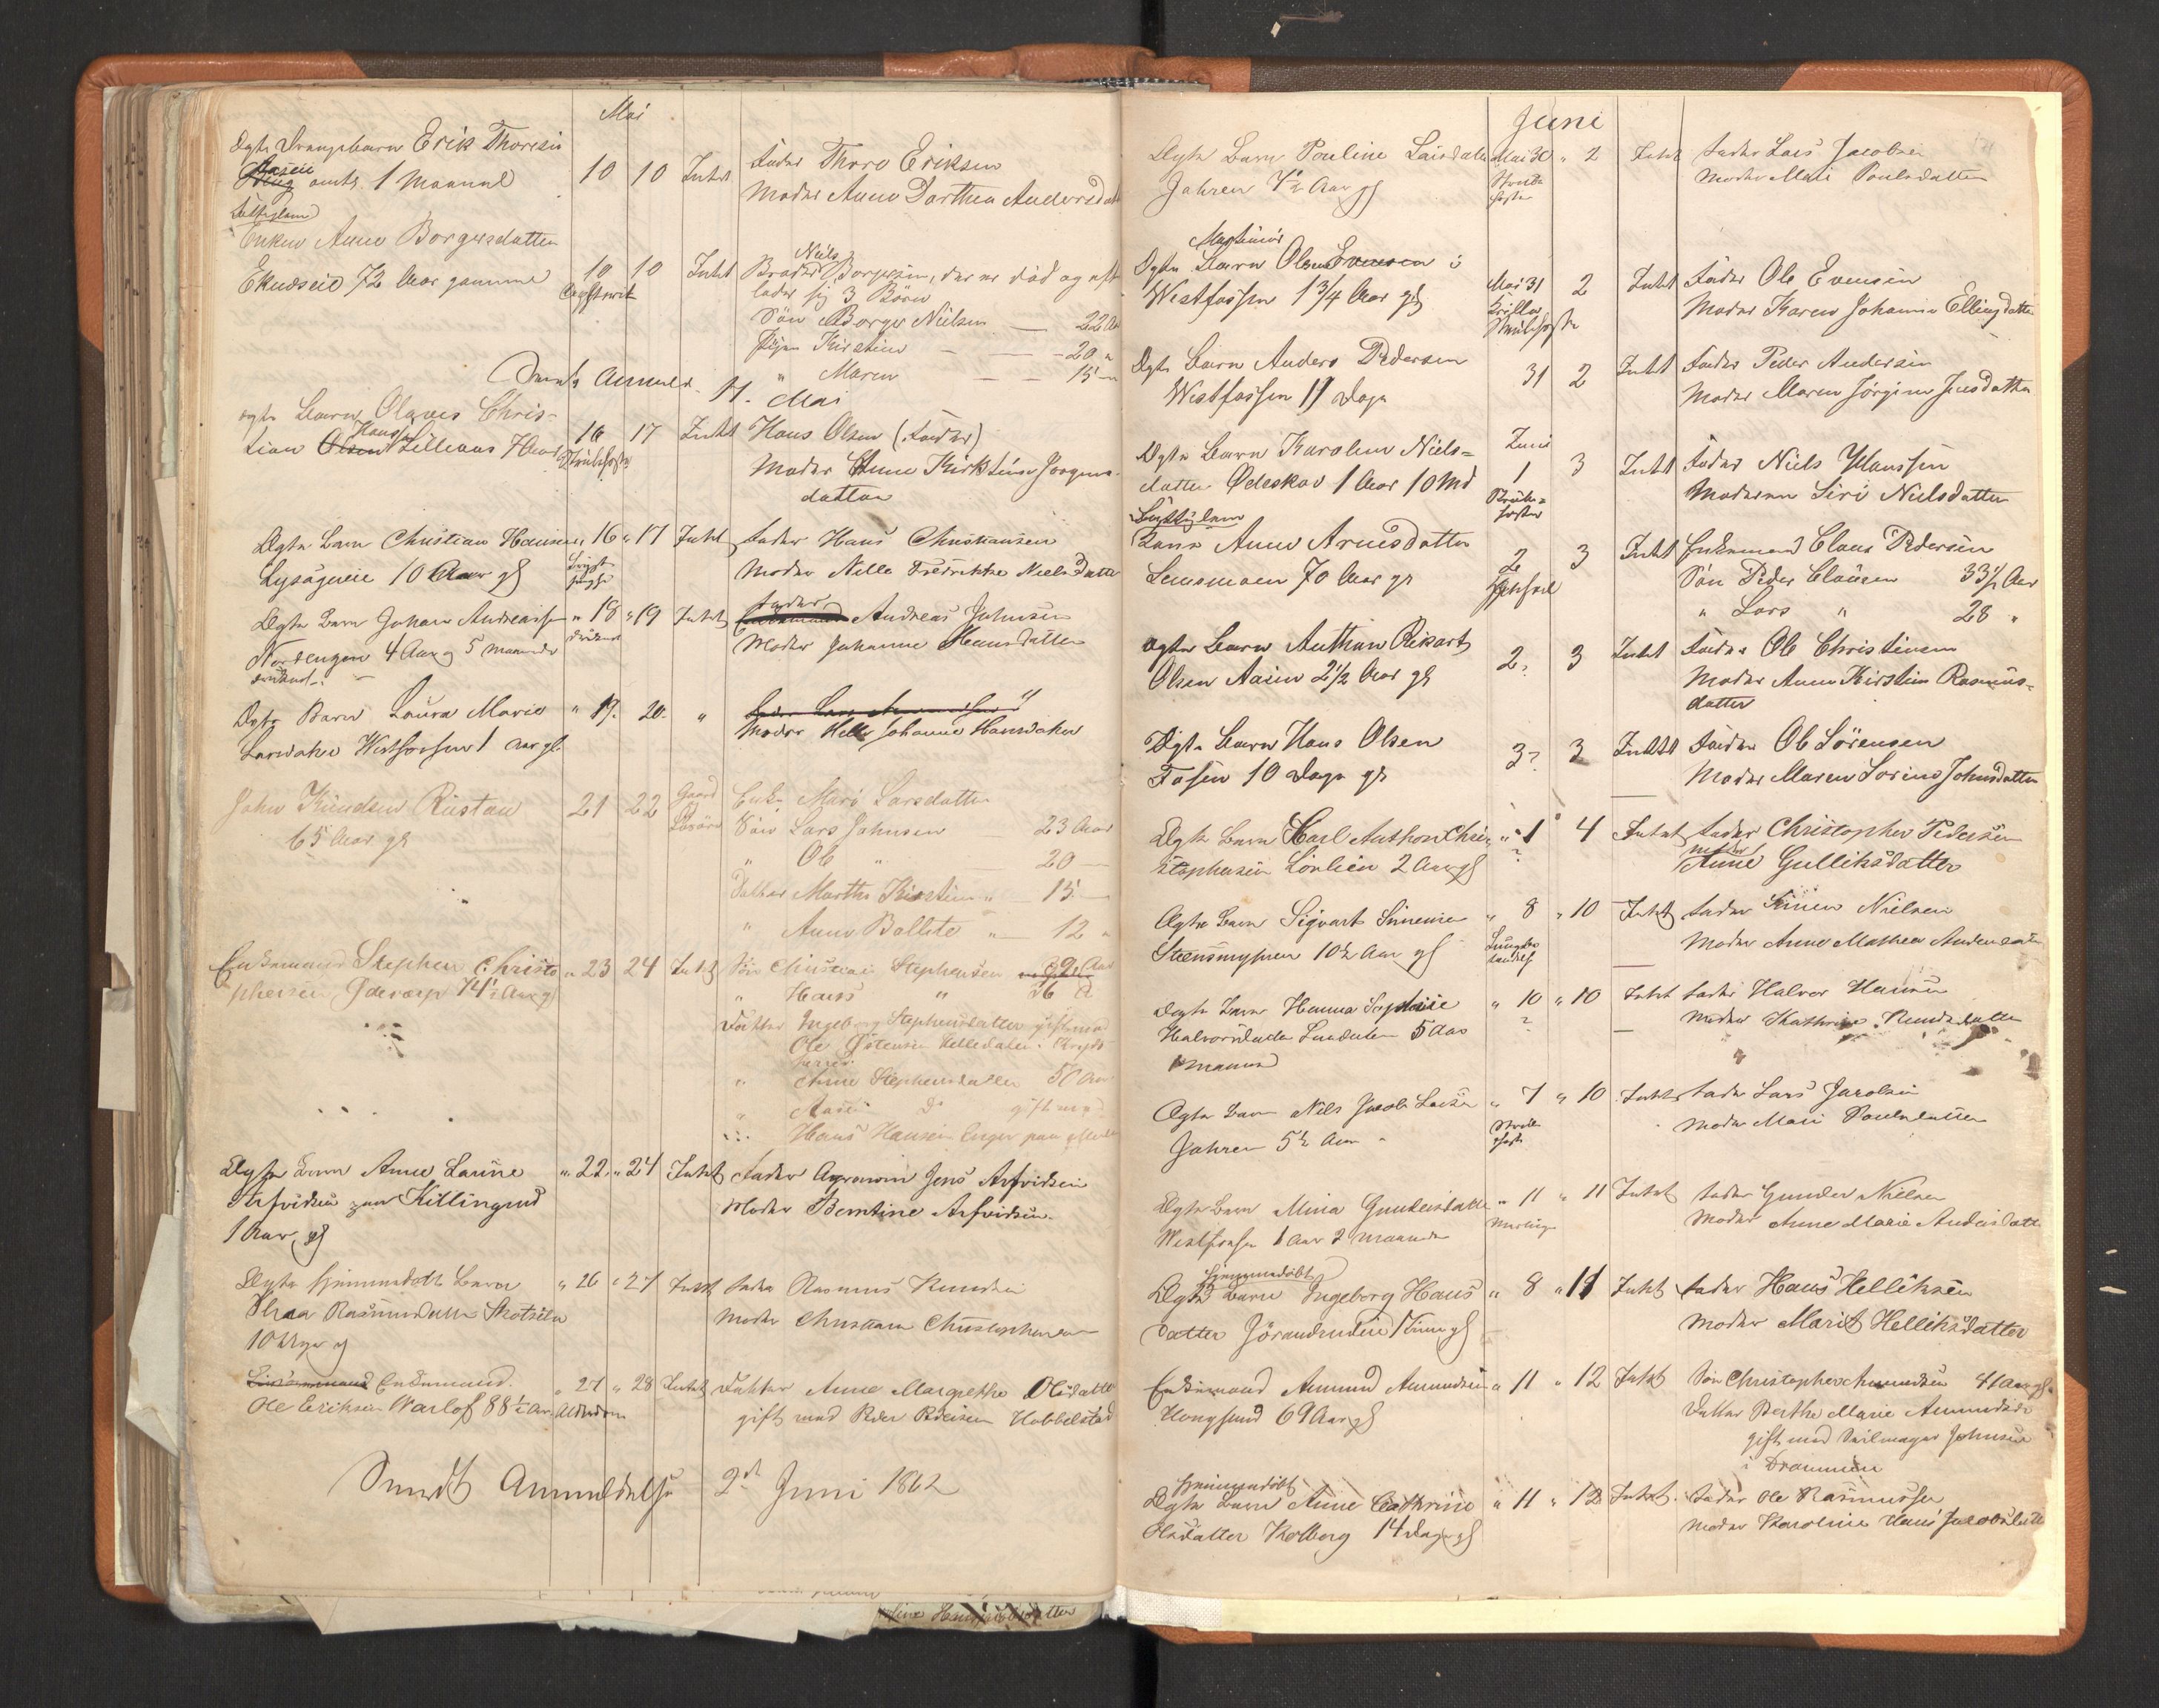 Mai
Ægte Drengebarn Erik Thoresen
1 Maaned
10 10 Intet
Fader Thore Eriksen
Moder Anne Dorthea Andersdatt
Enken Anne Borgersdatter
Ekudseie 72 Aar gammel
10 10 Intet
Niels
Broder Borgersen, der er död og eft
lader sig 3 Börn
Sön Borger Nielsen — 22 Aar
Pigen Kirstine — 20 "
" Maren — 15 —
Sendt Anmeld. 11. Mai
ægte Barn Olaves Chris-
Hansen
tian Olsen 7 Aar
16 17 Intet
Hans Olsen (Fader)
Moder Anne Kirkstine Jorgens-
datter
Ægte Barn Christian Hansen
10 Aar gl
" 16 " 17 Intet
Fader Hans Christiansen
Moder Nelle Fredrikke Nielsdatter
Ægte Barn Johan Andreassen
Nordengen 4 Aar og 5 Maaneder
druknet
" 18 " 19 Intet
druknet
Fader
Andreas Johnsen
Moder Johanne Hansdatter
Ægte Barn Laura Marie
Larsdatter Westfossen 1 Aar gl.
" 19. 20. "
Moder Helle Johanne Hansdatter
John Knudsen Rustan
65 Aar gl
21 22
Gaard
Enke Mari Larsdatter
Sön Lars Johnsen — 23 Aar
" Ole " 20 —
Datter Marthe Kirstine " — 15 —
" Anne Bollete " — 12 "
Enkemand Stephen Christo
phersen 74½ Aar gl
" 23 24 Intet
Sön Christian Stephensen
" Hans " 36
Datter Ingeborg Stephensdatter gift med
Ole Östensen
" Anne Stephensdatter 50 Aar
" do gift med
" Hans Hansen Enger
Ægte Barn Anne Laurine
Arfvidsen paa Killingrud
1 Aar gl
" 22 " 24 Intet
Fader Agronom Jens Arfvidsen
Moder Berntine Arfvidsen.
Ægte hjemmedöbt Barn
Thea Rasmusdatter Skotselv
10 Uger gl
" 26 " 27 Intet
Fader Rasmus Knudsen
Moder Christiane Christophersen
Enkemand.
Ole Eriksen Warlof 88½ Aar
" 27 " 28 Intet
Alderdom
Datter Anne Margrethe Olsdatter
gift med Peder Pedersen Hobbelstad
Sendt Anmeldelse 2d Juni 1862
Juni
Ægte Barn Pauline Larsdatter
Jahren 7½ Aar gl
Mai 30 " 2 Intet
Strube
hoste
Fader Lars Jacobsen
Moder Mari Poulsdatter
Martinius
Ægte Barn Olsen Evensen i
Westfossen 1 3/4 Aar gl
Mai 31 2 Intet
Fader Ole Evensen
Moder Karen Johanne Ellingsdatter
Ægte Barn Anders Pedersen
Westfossen 11 Dage
31 2 Intet
Fader Peder Andersen
Moder Maren Jörgine Jensdatter
Ægte Barn Karoline Niels-
datter Ödeskov 1 Aar 10 Md
Juni
1 3 Intet
Strube-
hoste
Fader Niels Hanssen
Moderen Siri Nielsdatter
Kone Anne Arnesdatter
Lensmoen 70 Aar gl
2 3 Intet
Enkemand Claus Pedersen
Sön Peder Clausen 33½ Aar
" Lars " 28 "
Ægte Barn Anthon Rikart
Olsen Aasen 2½ Aar gl
2. 3 Intet
Fader Ole Christensen
Moder Anne Kirstine Rasmus-
datter
Ægte Barn Hans Olsen
Fosen 10 Dage gl
3? 3 Intet
Fader Ole Sörensen
Moder Maren Sorine Johnsdatter
Ægte Barn Karl Anthon Chri-
stophersen Lörlien 2 Aar gl
" 1 4 Intet
?
Fader Christopher Pedersen
Moder
Anne Gulliksdatter
Ægte Barn Sigvart Simensen
Steensmyhren 10½ Aar gl
" 8 " 10 Intet
Fader Simen Nielsen
Moder Anne Mathea Andersdatter
Ægte Barn Hanna Sophie
Halvorsdatter 5 Aar
1 Maaned
" 10 " 10 Intet
?
Fader Halvor Hansen
Moder Kathrine Knudsdatter
Ægte Barn Nils Jacob Larsen
Jahren 5½ Aar
" 7 " 10 Intet
Strube
hoste
Fader Lars Jacobsen
Moder Mari Poulsdatter
Ægte Barn Mina Gundersdatter
Westfossen 1 Aar 2 Maaneder
" 11 " 11 Intet
Mæslinger
Fader Gunder Nielsen
Moder Anne Marie Andersdatter
hjemmedöbt
Ægte Barn Ingeborg Hans
datter
" 8 " 11 Intet
Fader Hans Helliksen
Moder Marit Helliksdatter
Enkemand Amund Amundsen
Hougsund 69 Aar gl
" 11 " 12 Intet
Sön Christopher Amundsen 41 Aar gl
Datter Berthe Marie Amundsdtr
gift med Seilmager Johnsen
i Drammen
hjemmedöbt
Ægte Barn Anne Cathrine
Olsdatter Kolberg 14 Dage gl
" 11 " 12 Intet.
Fader Ole Rasmussen
Moder Karoline Hans Jacobsdatter